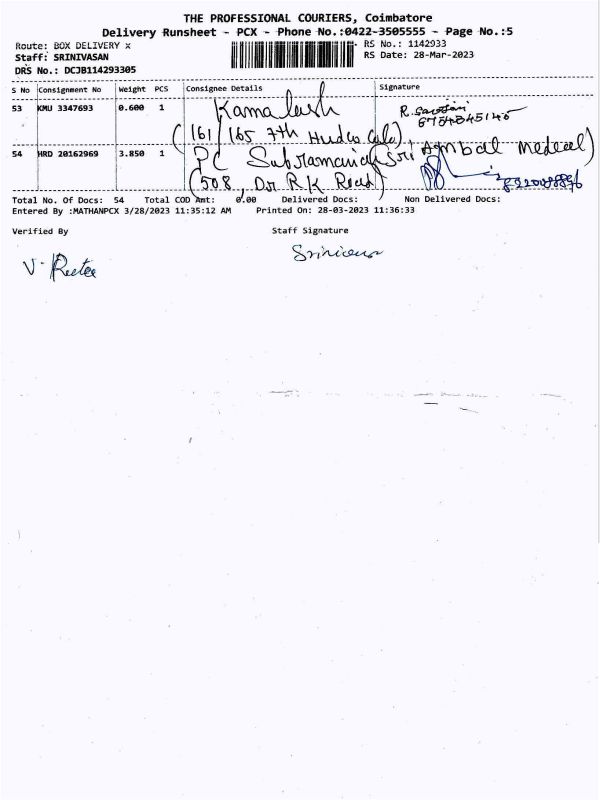 THE PROFESSIONAL COURIERS, Coimbatore
Delivery Runsheet - PCX - Phone No.:0422-3505555 - Page No.:5
Route: BOX DELIVERY x
RS No.: 1142933
Staff: SRINIVASAN
RS Date: 28-Mar-2023
DRS No.: DCJB114293305
S No Consignment No Weight PCS Consignee Details Signature
53 KMU 3347693 0.600 1 Kamalesh
(161/165 7th Hudco Colo)
54 HRD 20162969 3.850 1 PC Subramaniam Sri Ambal Medical)
(508, Dr R K Road)
Total No. Of Docs: 54 Total COD Amt: 0.00 Delivered Docs: Non Delivered Docs:
Entered By :MATHANPCX 3/28/2023 11:35:12 AM Printed On: 28-03-2023 11:36:33
Verified By Staff Signature